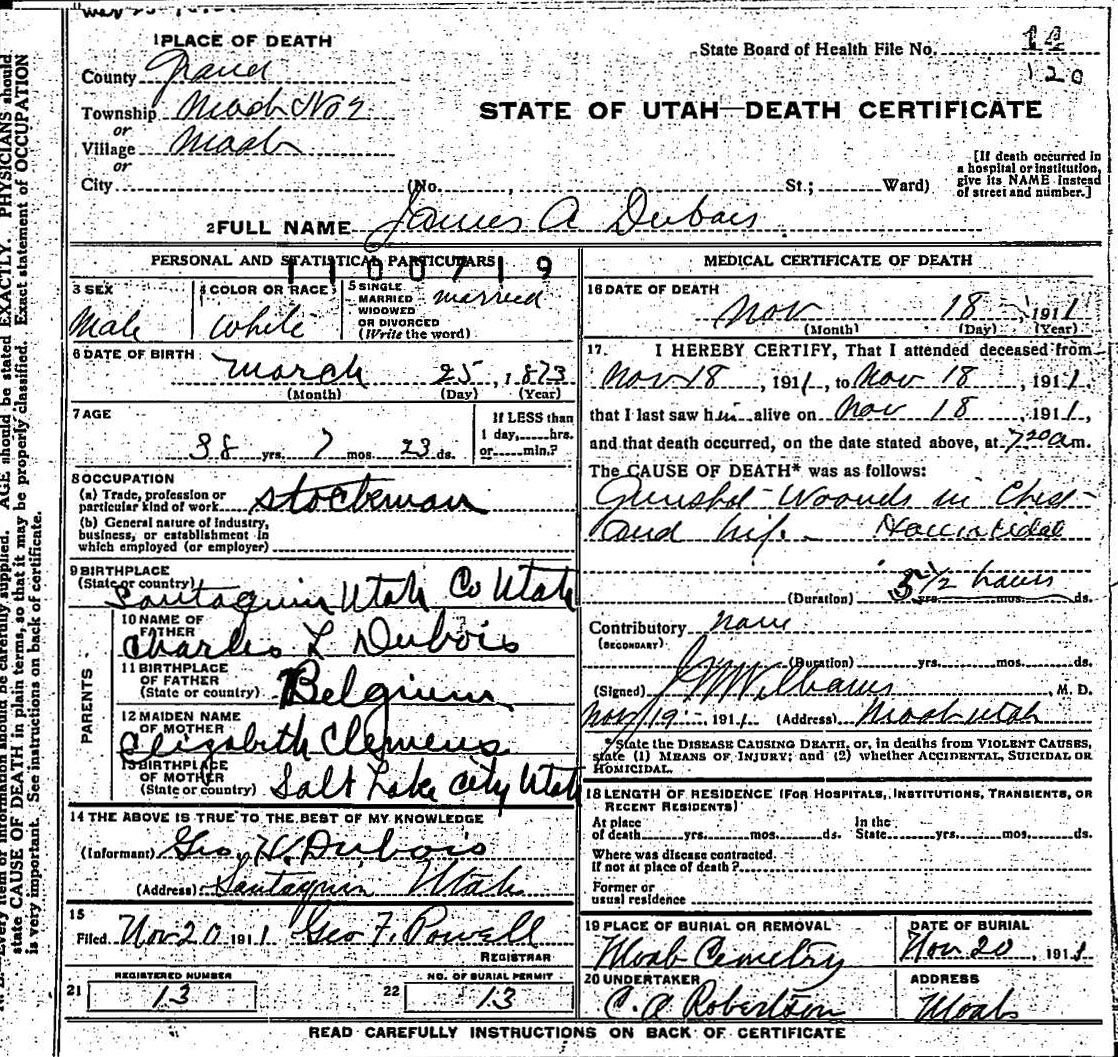 1 PLACE OF DEATH
State Board of Health File No. 14
120
County Grand
Township Moab No 2
or
Village Moab
or
City (No. , St.; Ward)
STATE OF UTAH—DEATH CERTIFICATE
[If death occurred in
a hospital or institution,
give its NAME instead
of street and number.]
2 FULL NAME James A Dubois
PERSONAL AND STATISTICAL PARTICULARS
1100719
3 SEX
Male
4 COLOR OR RACE
White
5 SINGLE
MARRIED
WIDOWED
OR DIVORCED
(Write the word)
married
6 DATE OF BIRTH
March 25, 1873
(Month) (Day) (Year)
7 AGE
38 yrs. 7 mos. 23 ds.
If LESS than
1 day, hrs.
or min.?
8 OCCUPATION
(a) Trade, profession or
particular kind of work stockman
(b) General nature of industry,
business, or establishment in
which employed (or employer)
9 BIRTHPLACE
(State or country)
Santaquin Utah Co Utah
PARENTS
10 NAME OF
FATHER
Charles L Dubois
11 BIRTHPLACE
OF FATHER
(State or country) Belgium
12 MAIDEN NAME
OF MOTHER
Elizabeth Clemens
13 BIRTHPLACE
OF MOTHER
(State or country) Salt Lake City Utah
14 THE ABOVE IS TRUE TO THE BEST OF MY KNOWLEDGE
(Informant) Geo W. Dubois
(Address) Santaquin Utah
15
Filed Nov 20 1911 Geo F. Powell
REGISTRAR
REGISTERED NUMBER
21 13
NO. OF BURIAL PERMIT
22 13
MEDICAL CERTIFICATE OF DEATH
16 DATE OF DEATH
Nov 18, 1911
(Month) (Day) (Year)
17. I HEREBY CERTIFY, That I attended deceased from
Nov 18, 1911, to Nov 18, 1911,
that I last saw him alive on Nov 18, 1911,
and that death occurred, on the date stated above, at 7 20 a m.
The CAUSE OF DEATH* was as follows:
Gunshot Woonds in Chest
and hip. Homicidal
(Duration) 5 1/2 hours yrs. mos. ds.
Contributory none
(SECONDARY)
(Duration) yrs. mos. ds.
(Signed) J W Williams, M. D.
Nov 19 1911 (Address) Moab Utah
*State the DISEASE CAUSING DEATH, or, in deaths from VIOLENT CAUSES,
state (1) MEANS OF INJURY; and (2) whether ACCIDENTAL, SUICIDAL OR
HOMICIDAL.
18 LENGTH OF RESIDENCE (FOR HOSPITALS, INSTITUTIONS, TRANSIENTS, OR
RECENT RESIDENTS)
At place
of death yrs. mos. ds.
In the
State yrs. mos. ds.
Where was disease contracted
If not at place of death?
Former or
usual residence
19 PLACE OF BURIAL OR REMOVAL
Moab Cemetry
DATE OF BURIAL
Nov 20, 1911
20 UNDERTAKER
C. A Robertson
ADDRESS
Moab
READ CAREFULLY INSTRUCTIONS ON BACK OF CERTIFICATE
Every item of information should be carefully supplied. AGE should be stated EXACTLY. PHYSICIANS should
state CAUSE OF DEATH in plain terms, so that it may be properly classified. Exact statement of OCCUPATION
is very important. See instructions on back of certificate.